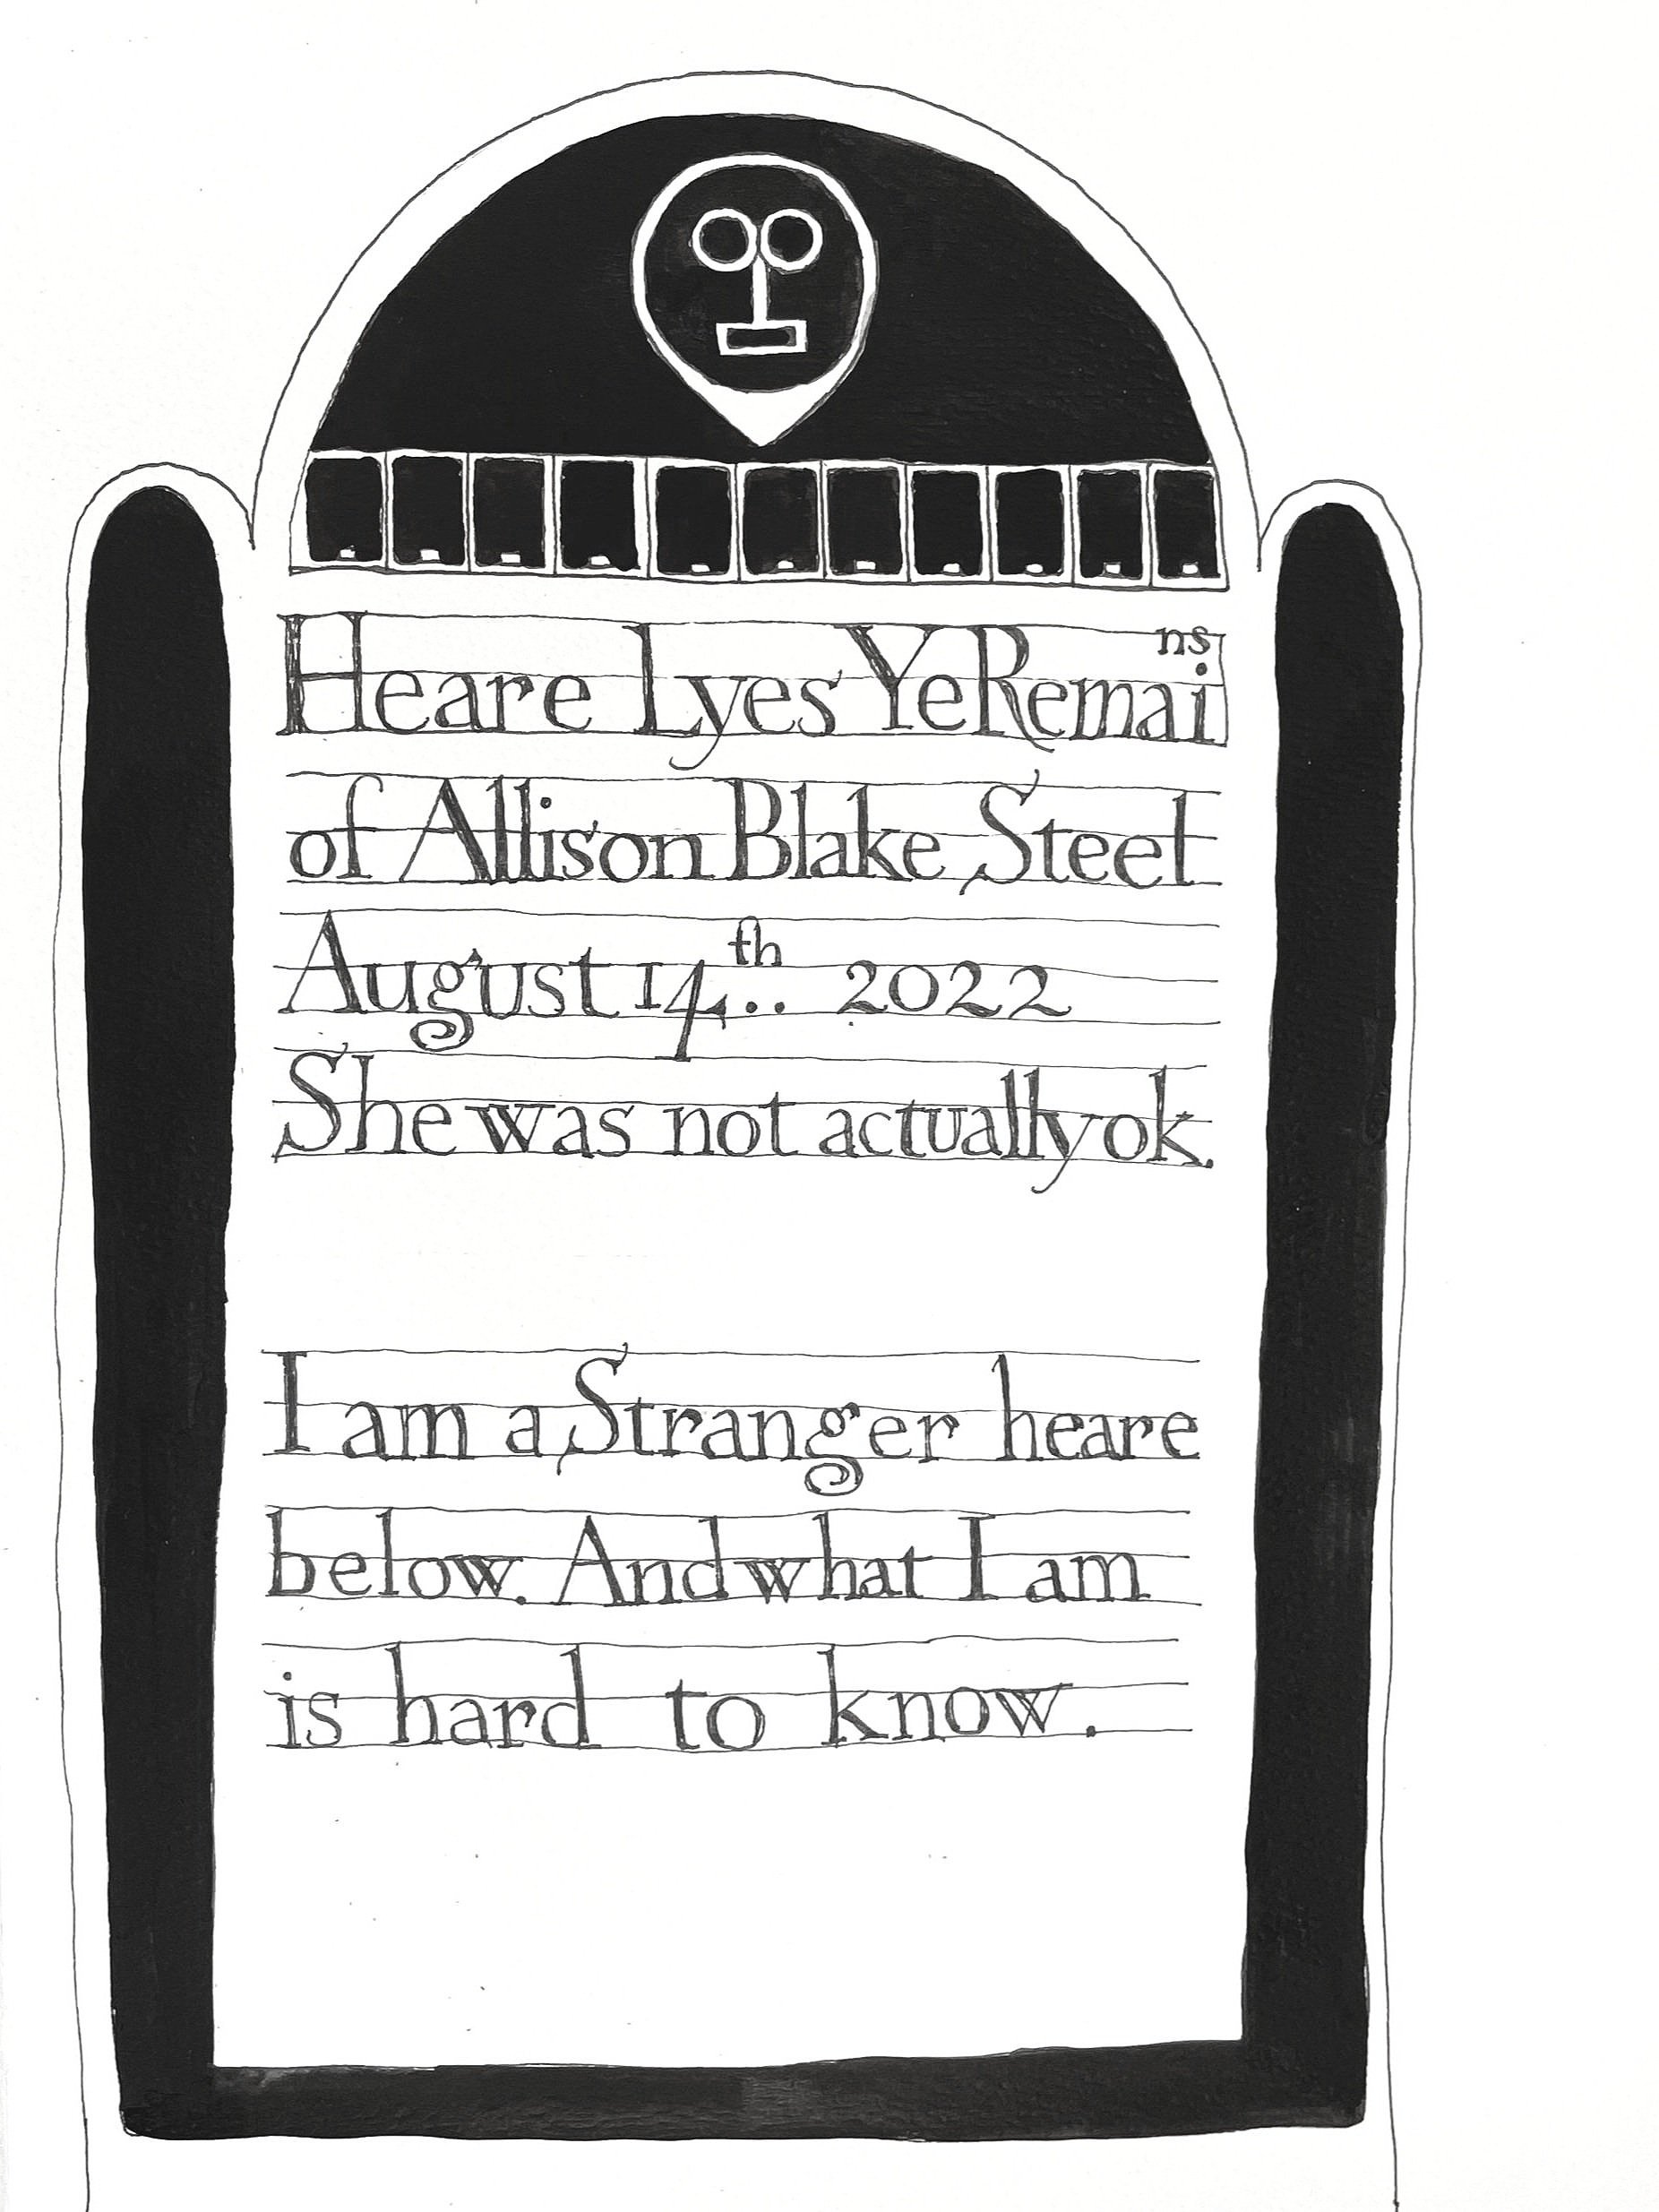 Heare Lyes Ye Remains
of Allison Blake Steel
August 14th.. 2022
She was not actually ok.
I am a Stranger heare
below. And what I am
is hard to know.